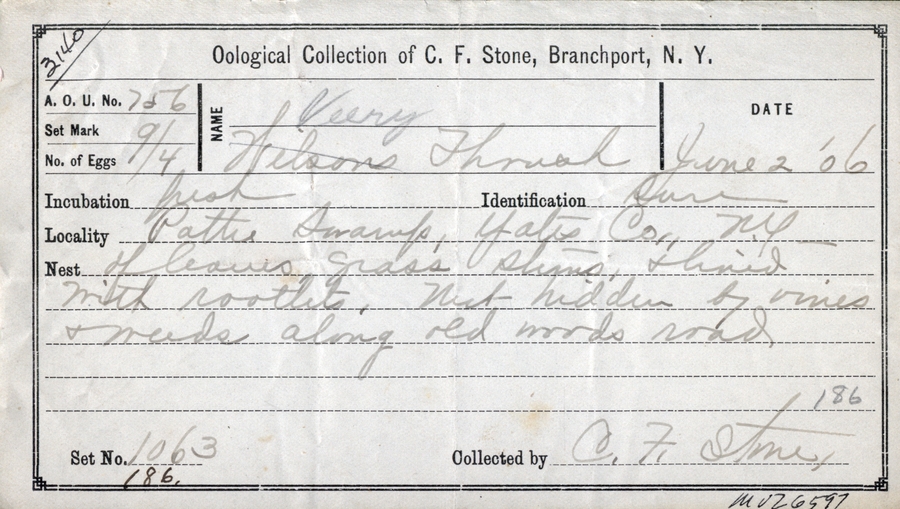 3140
Oological Collection of C. F. Stone, Branchport, N. Y.
A. O. U. No. 756
Set Mark 9/4
No. of Eggs
NAME
Veery
Wilsons Thrush
DATE
June 2 '06
Incubation fresh Identification Sure
Locality Potter Swamp, Yates Co., N.Y.
Nest of leaves, grass stems, & lined
with rootlets, Nest hidden by vines
& weeds along old woods road
186
Set No. 1063
186.
Collected by C. F. Stone,
MVZ 6597